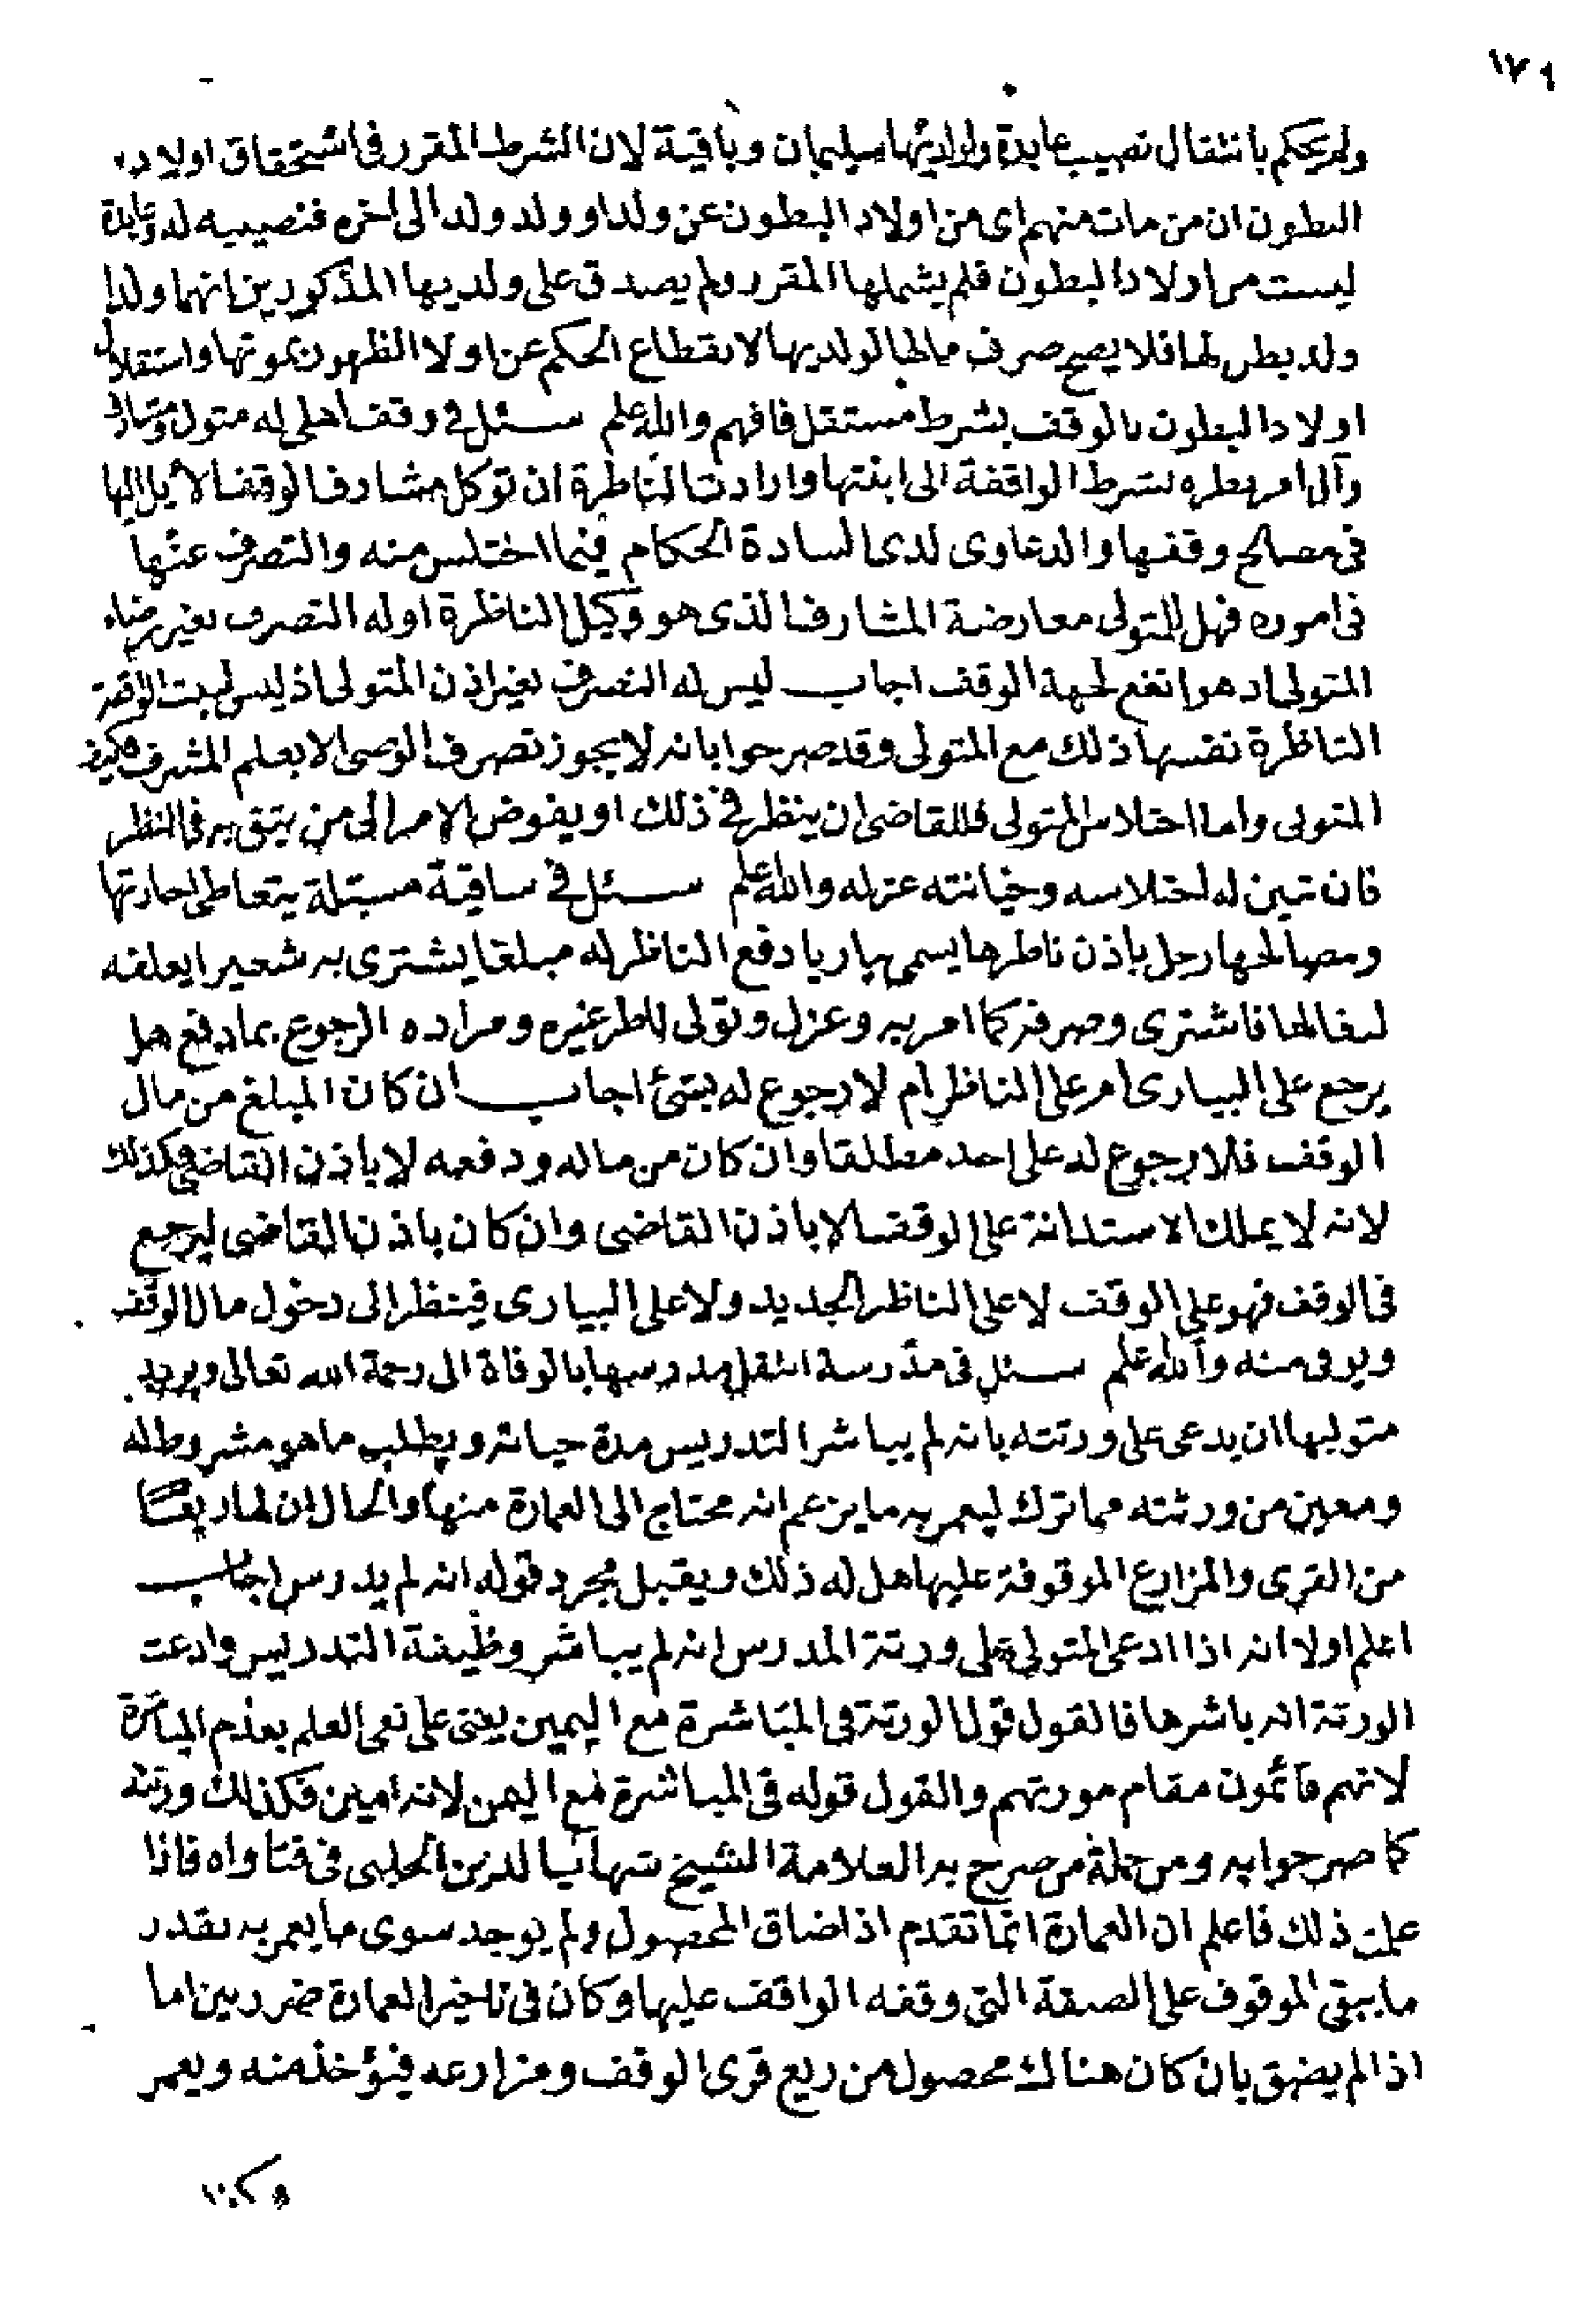 ١٧٦
ولم يحكم بانتقال نصيب عابدة لولديها سليمان وباقية لان الشرط المقرر في استحقاق اولاد
البطون ان من مات منهم اى من اولاد البطون عن ولد او ولد ولد الى اخره فنصيبه له وعابدة
ليست من اولاد البطون فلم يشملها المقرر ولم يصدق على ولديها المذكورين انهما ولدا
ولد بطن لها فلا يصح صرف مالها لولديها لانقطاع الحكم عن اولاد الظهور بموتها واستقلال
اولاد البطون بالوقف بشرط مستقل فافهم والله اعلم سئل في وقف اهلى له متول ومشارف
وآل امر نظره بشرط الواقفة الى ابنتها وارادت الناظرة ان توكل مشارف الوقف الآيل اليها
في مصالح وقفها والدعاوى لدى السادة الحكام فيما اختلس منه والتصرف عنها
في اموره فهل للمتولى معارضة المشارف الذى هو وكيل الناظرة او له التصرف بغير رضاء
المتولى اذ هو انفع لجهة الوقف اجاب ليس له التصرف بغير اذن المتولى اذ ليس لبنت الواقفة
الناظرة نفسها ذلك مع المتولى وقد صرحوا بانه لا يجوز تصرف الوصى الا بعلم المشرف فكيف
المتولى واما اختلاس المتولى فللقاضى ان ينظر في ذلك او يفوض الامر الى من يثق به في النظر
فان تبين له اختلاسه وخيانته عزله والله اعلم سئل في ساقية مسبلة يتعاطى اجارتها
ومصالحها رجل باذن ناظرها يسمى بياريا دفع الناظر له مبلغا يشترى به شعيرا يعلفه
لبغالها فاشترى وصرفه كما امر به وعزل وتولى ناظر غيره ومراده الرجوع بما دفع هل
يرجع على البيارى ام على الناظر ام لا رجوع له بشئ اجاب ان كان المبلغ من مال
الوقف فلا رجوع له على احد مطلقا وان كان من ماله ودفعه لا باذن القاضى فكذلك
لانه لا يملك الاستدانة على الوقف الا باذن القاضى وان كان باذن القاضى ليرجع
في الوقف فهو على الوقف لا على الناظر الجديد ولا على البيارى فينظر الى دخول مال الوقف
ويوفى منه والله اعلم سئل في مدرسة انتقل مدرسها بالوفاة الى رحمة الله تعالى ويريد
متوليها ان يدعى على ورثته بانه لم يباشر التدريس مدة حياته ويطلب ما هو مشروط له
ومعين من ورثته مما ترك ليعمر به ما يزعم انه محتاج الى العمارة منها والحال ان لها ريعا
من القرى والمزارع الموقوفة عليها هل له ذلك ويقبل مجرد قوله انه لم يدرس اجاب
اعلم اولا انه اذا ادعى المتولى على ورثة المدرس انه لم يباشر وظيفة التدريس وادعت
الورثة انه باشرها فالقول قول الورثة في المباشرة مع اليمين يعنى على نفى العلم بعدم المباشرة
لانهم قائمون مقام مورثهم والقول قوله في المباشرة مع اليمين لانه امين فكذلك ورثته
كما صرحوا به ومن جملة من صرح به العلامة الشيخ شهاب الدين الحلبى في فتاواه فاذا
علمت ذلك فاعلم ان العمارة انما تقدم اذا ضاق المحصول ولم يوجد سوى ما يعمر به بقدر
ما يبقى الموقوف على الصفة التى وقفه الواقف عليها وكان في تاخير العمارة ضرر بين اما
اذا لم يضق بان كان هناك محصول من ريع قرى الوقف ومزارعه فيؤخذ منه ويعمر